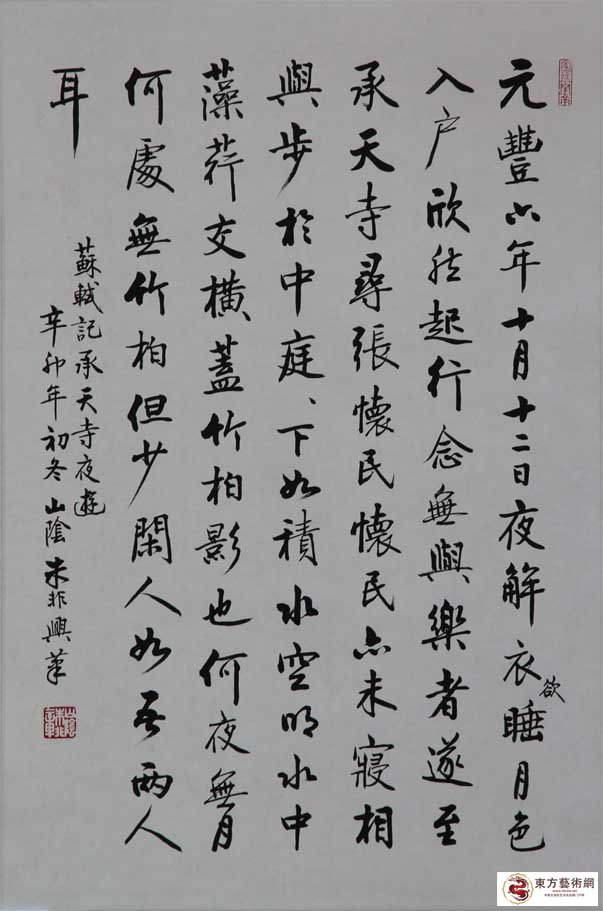 元豐六年十月十二日夜解衣欲睡月色
入户欣然起行念無與樂者遂至
承天寺尋張懷民懷民亦未寢相
與步於中庭、下如積水空明水中
藻荇交橫蓋竹柏影也何夜無月
何處無竹柏但少閑人如吾兩人
耳
蘇軾記承天寺夜遊
辛卯年初冬山陰朱非興筆
東方藝術網